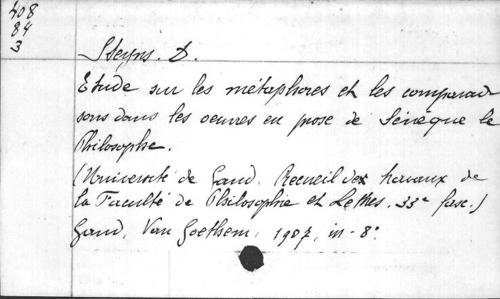 408
84
3
Steyns. D.
Etude sur les métaphores et les comparai
sons dans les oeuvres en prose de Sénèque le
Philosophe.
(Université de Gand. Recueil des travaux de
la Faculté de Philosophie et Lettres. 33e fasc.)
Gand, Van Goethem, 1907, in-8°